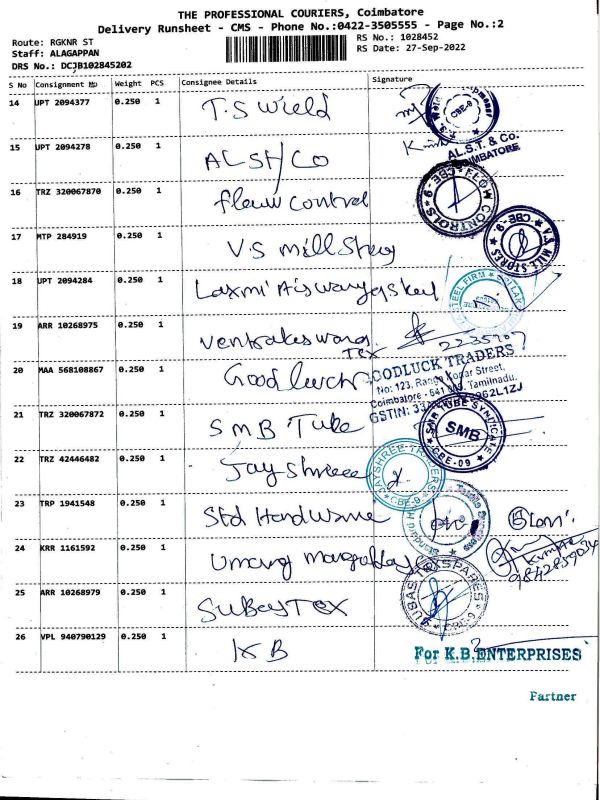 THE PROFESSIONAL COURIERS, Coimbatore
Delivery Runsheet - CMS - Phone No.:0422-3505555 - Page No.:2
Route: RGKNR ST
Staff: ALAGAPPAN
DRS No.: DCJB102845202
RS No.: 1028452
RS Date: 27-Sep-2022
S No Consignment No Weight PCS Consignee Details Signature
14 UPT 2094377 0.250 1 T.S Wield
CBE-9
15 UPT 2094278 0.250 1 ALST/CO
AL.S.T. & Co.
COIMBATORE
16 TRZ 320067870 0.250 1 flow control
FLOW CONTROLS CBE-9
17 MTP 284919 0.250 1 V.S mill Story
V.S. MILL STORES CBE-9
18 UPT 2094284 0.250 1 Laxmi
STEEL FIRM
19 ARR 10268975 0.250 1 Venkateswara
Tex
2235707
20 MAA 568108867 0.250 1 Good luck
GOODLUCK TRADERS
No: 123, Ranga Konar Street,
Coimbatore - 641 Tamilnadu.
GSTIN: 33
21 TRZ 320067872 0.250 1 SMB Tube
SMB TUBE SYNDICATE
SMB
CBE-09
22 TRZ 42446482 0.250 1 Jayshree
JAYSHREE TRADERS
CBE-9
23 TRP 1941548 0.250 1 Std Hardware
24 KRR 1161592 0.250 1 Umang
9842859034
25 ARR 10268979 0.250 1 SUBasTEX
SUBAS TEX SPARES
26 VPL 940790129 0.250 1 KB
For K.B.ENTERPRISES
Partner